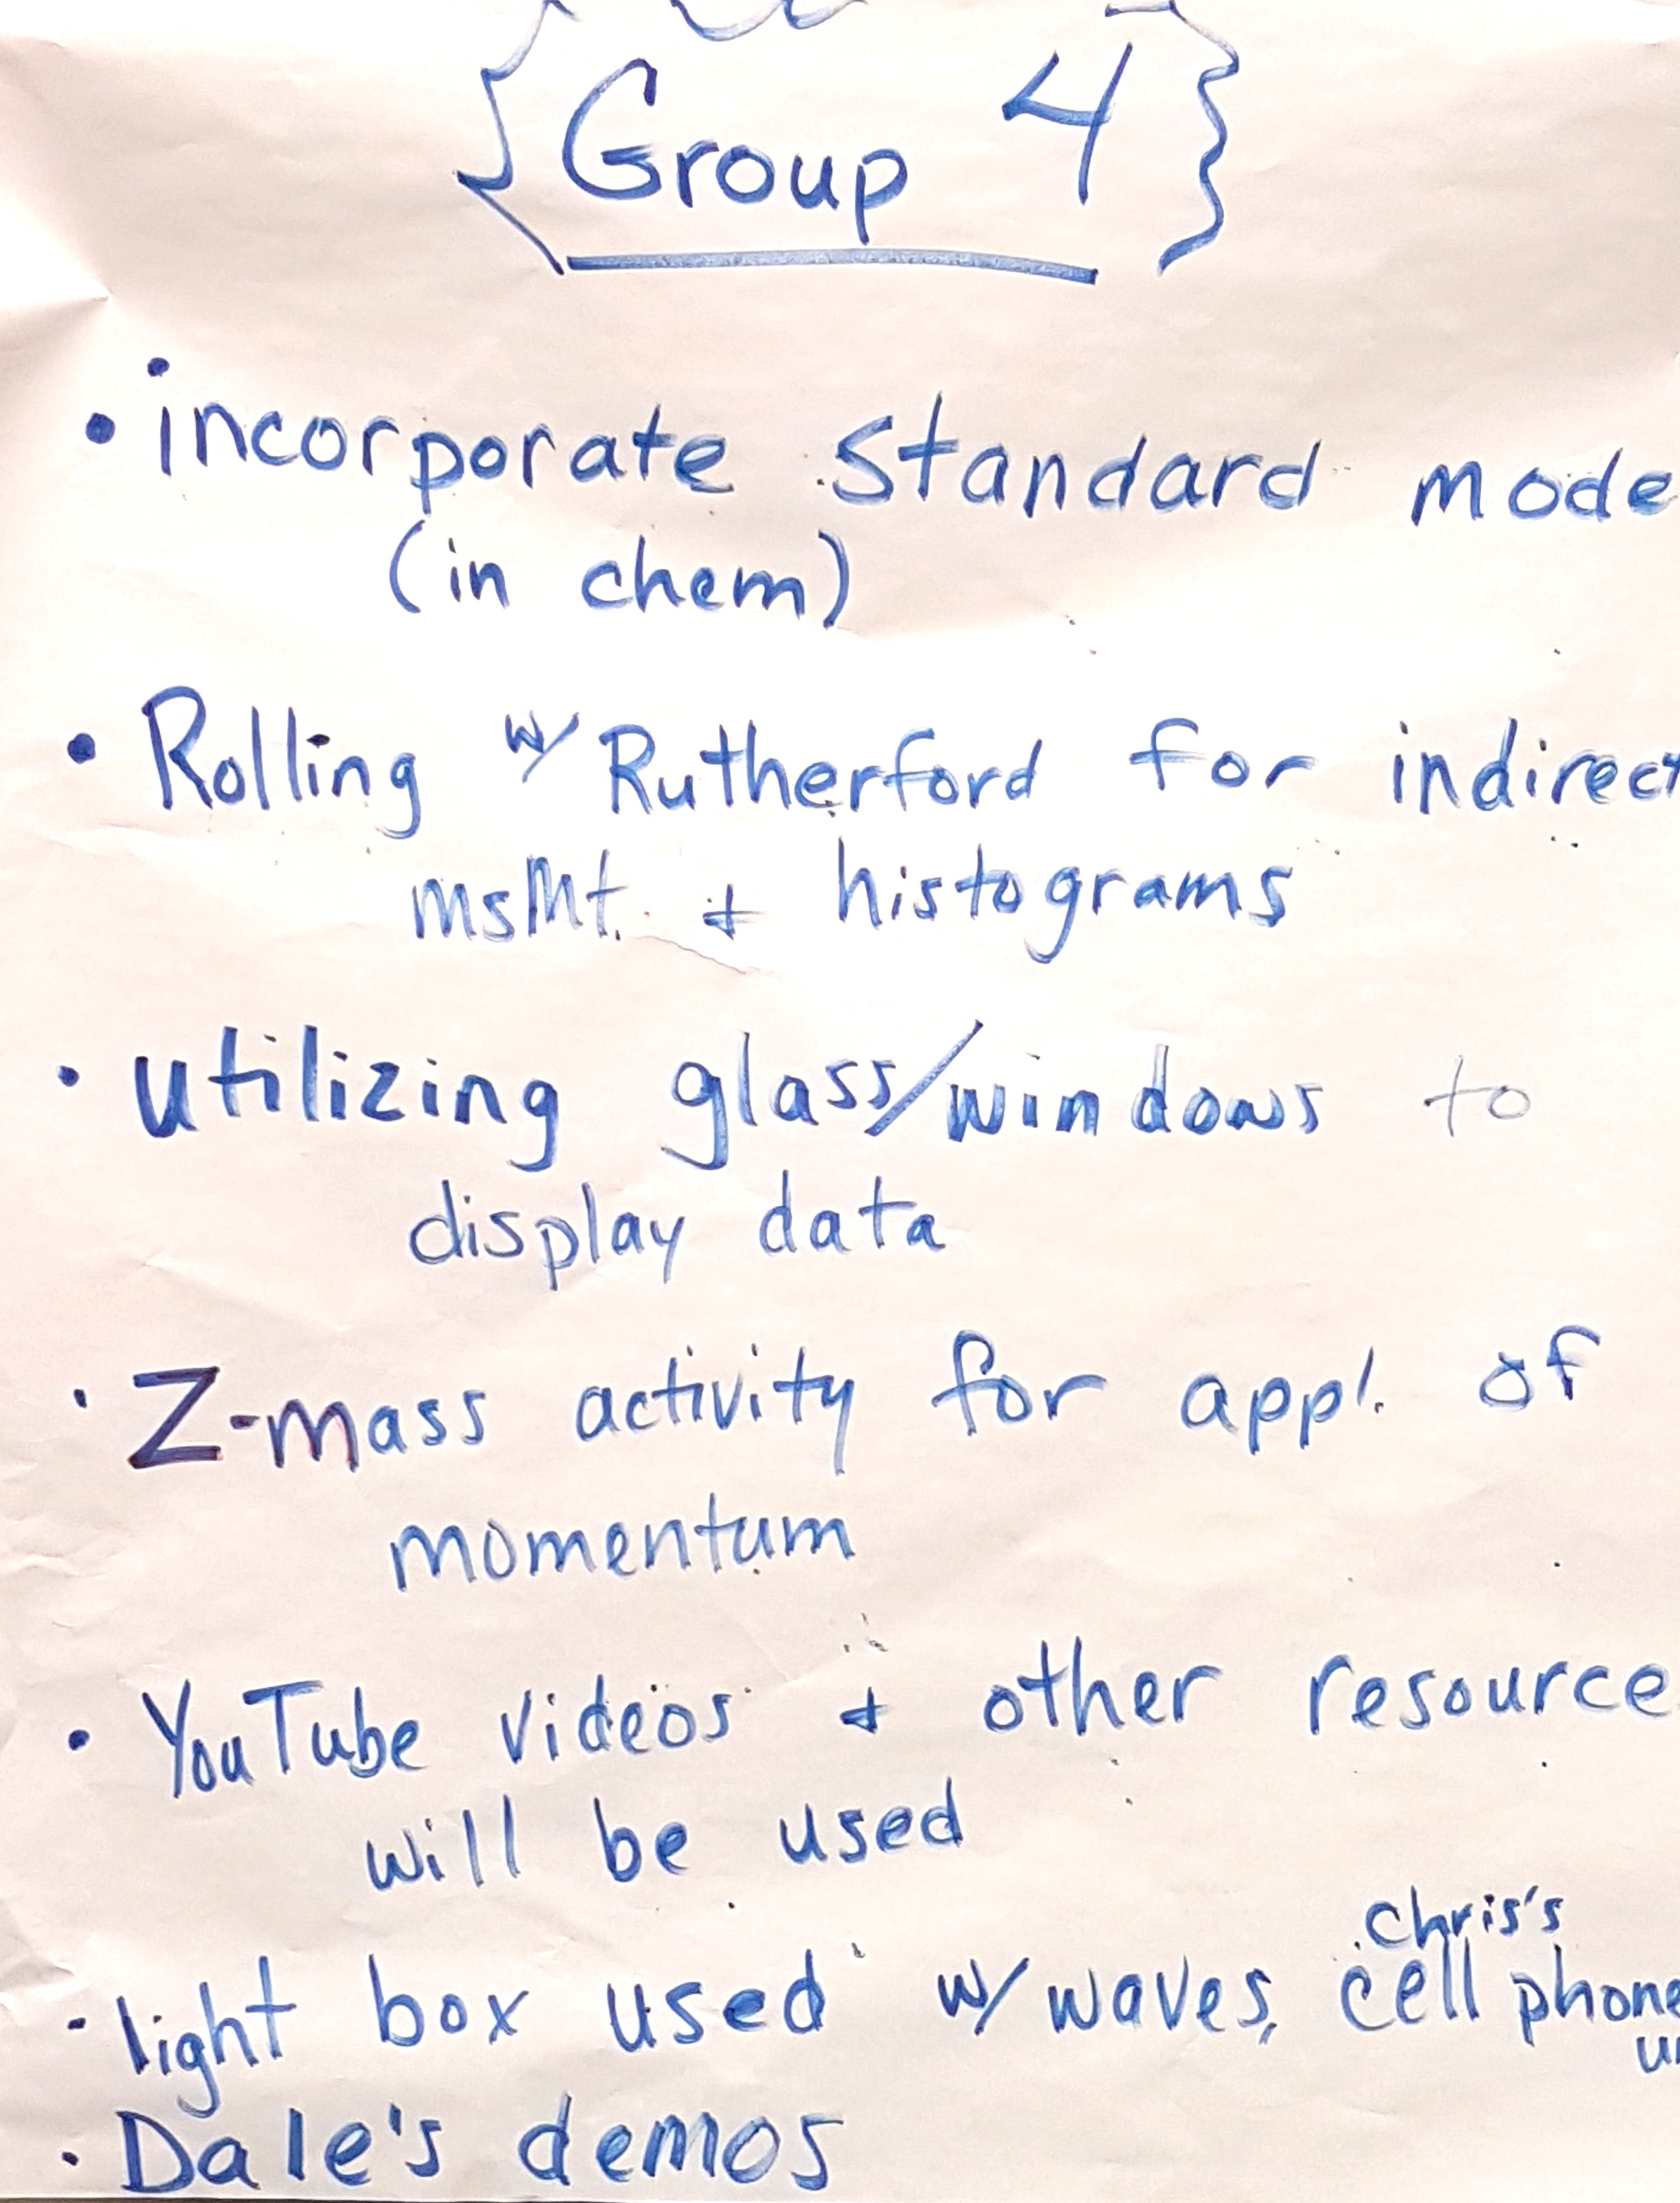 {Group 4}
• incorporate standard mode
(in chem)
• Rolling w/ Rutherford for indirect
msmt. + histograms
• utilizing glass/windows to
display data
• Z-mass activity for appl. of
momentum
• YouTube videos + other resource
will be used
chris's
• light box used w/ waves, cell phone
• Dale's demos